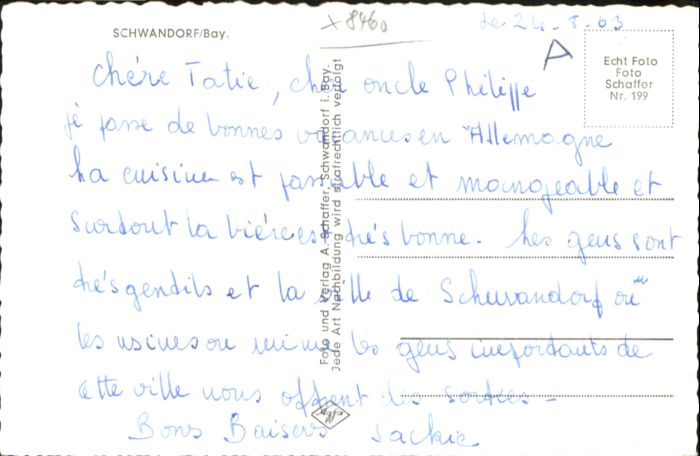 SCHWANDORF/Bay.
x 8460
Le 24-8.63
A
Echt Foto
Foto
Schaffer
Nr. 199
Chère Tatie, cher oncle Philippe
je passe de bonnes vacances en Allemagne
La cuisine est passable et mangeable et
surtout la bière est très bonne. Les gens sont
très gentils et la ville de Schwandorf ou
les usines ou même les gens importants de
cette ville nous offrent des sorties -
Bons Baisers Jackie
Foto und Verlag A. Schaffer, Schwandorf i. Bay.
Jede Art Nachbildung wird strafrechtlich verfolgt
Agfa